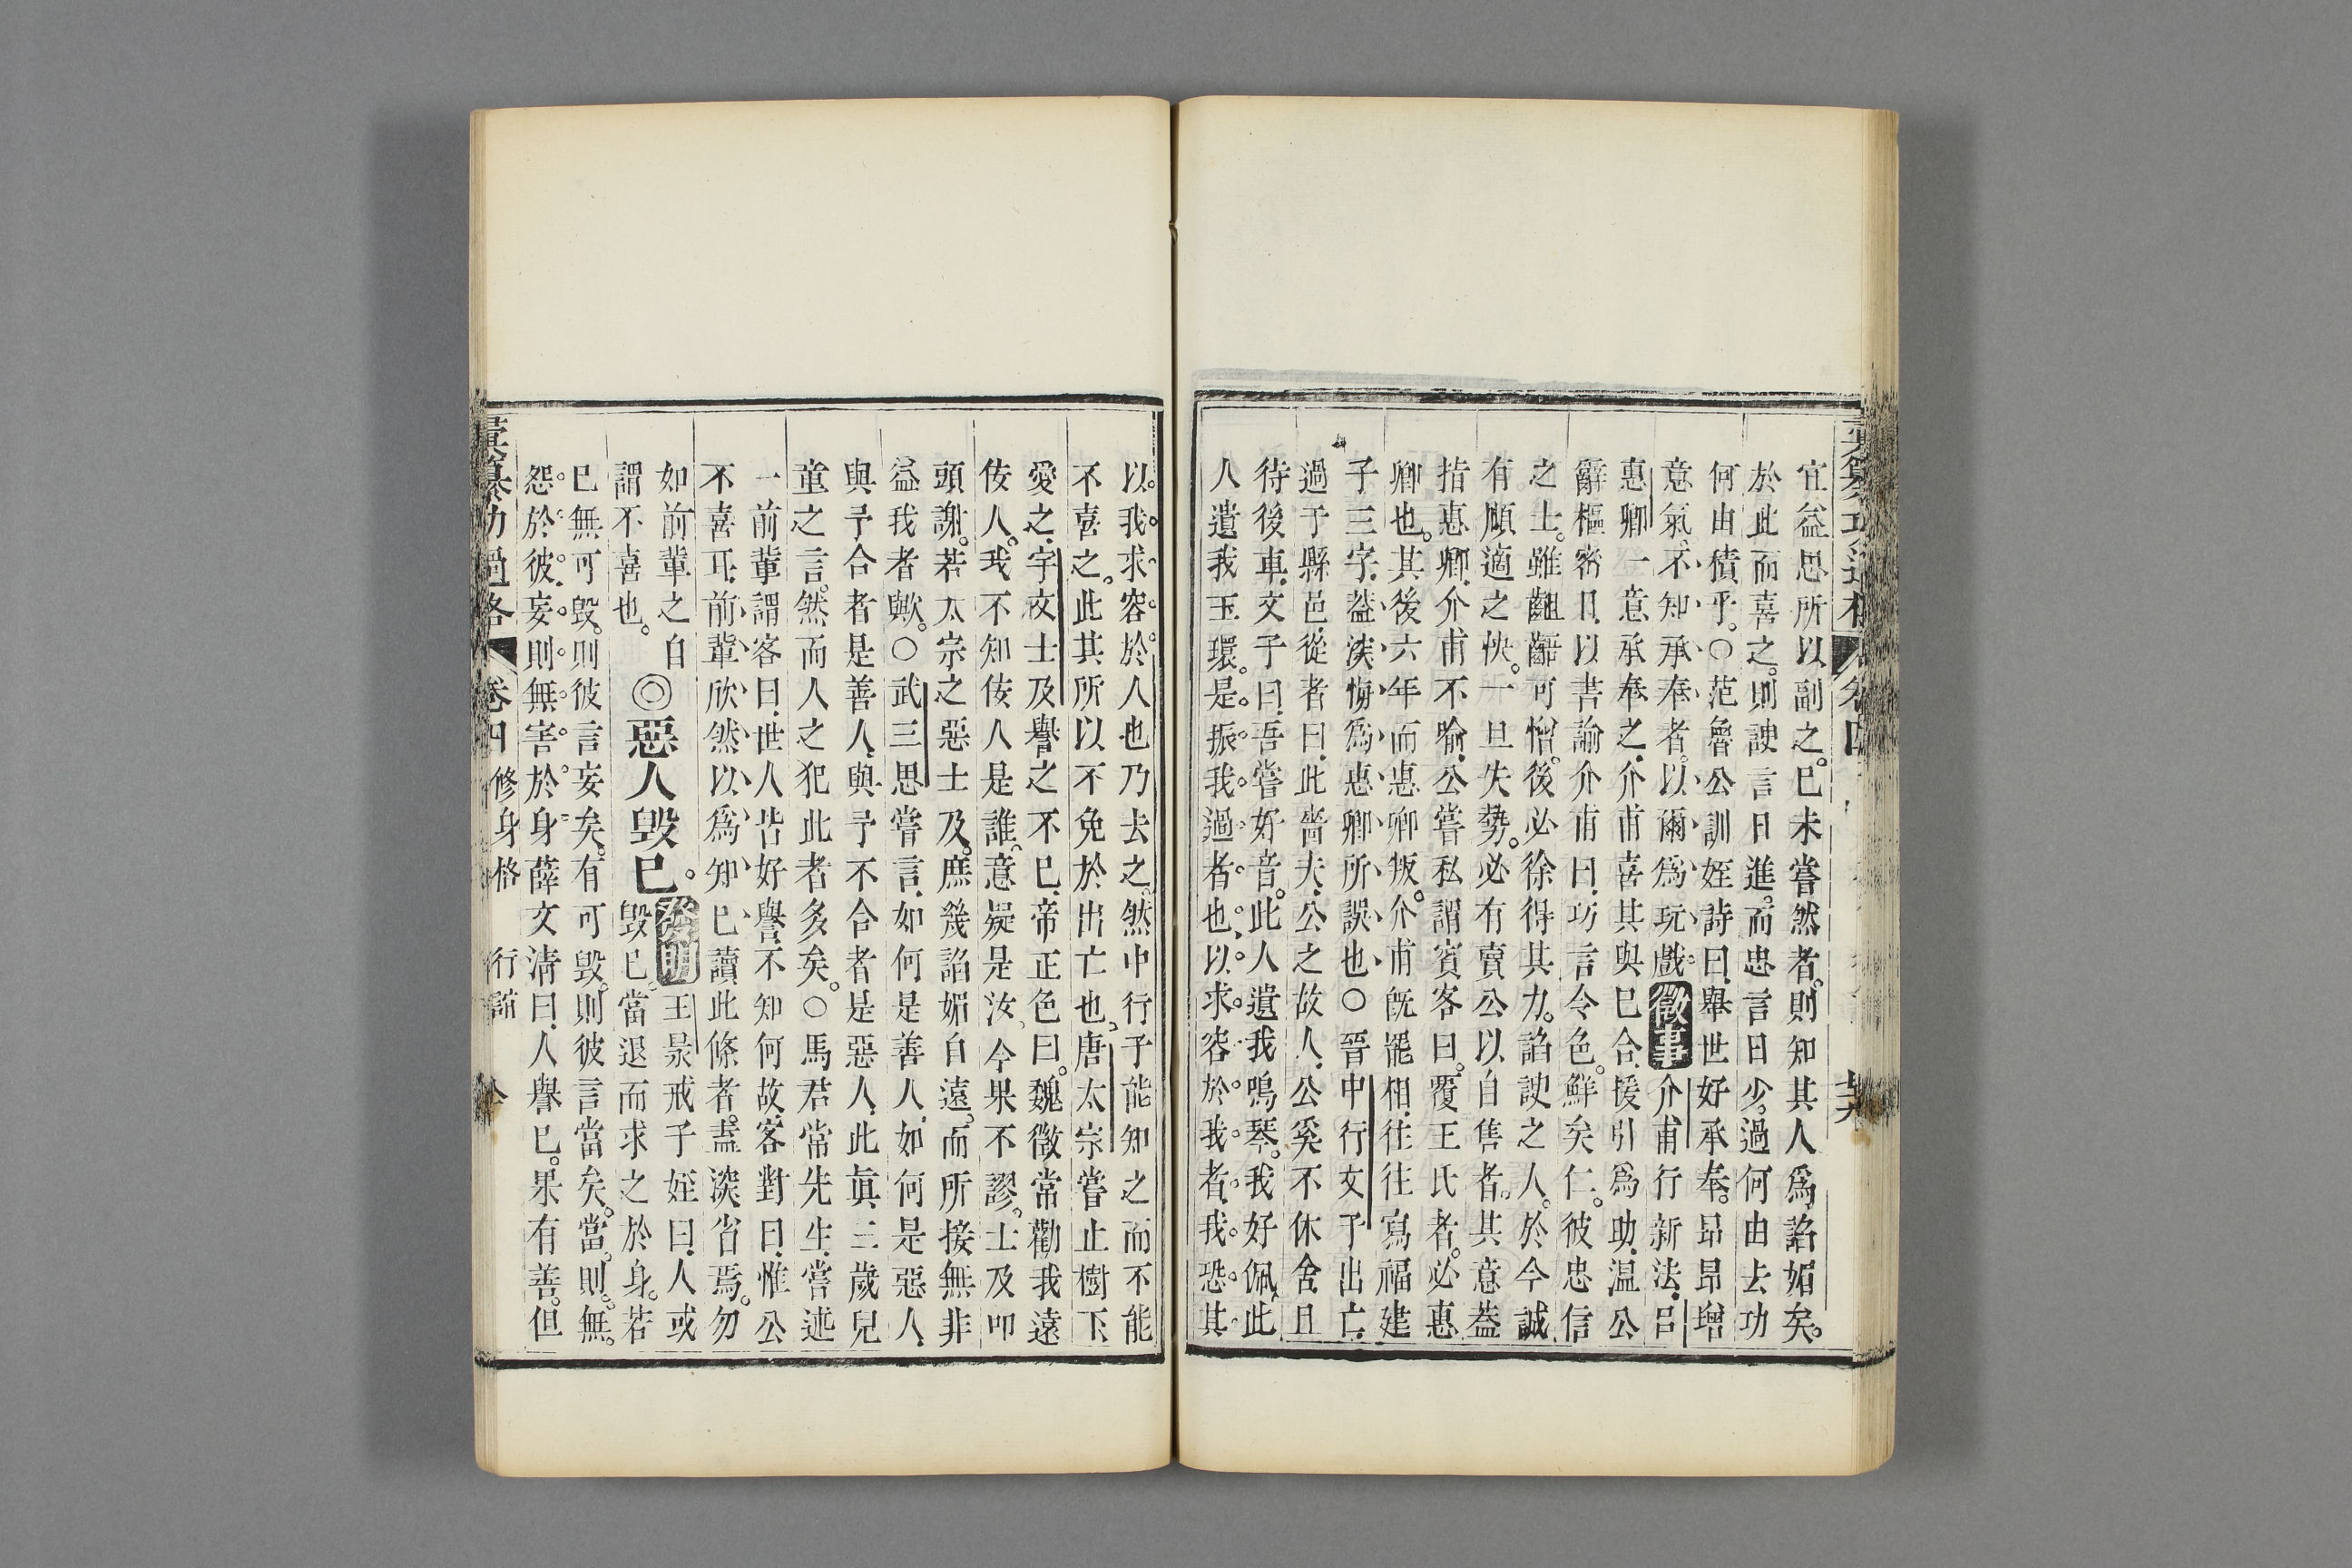 宜益思所以副之。已未嘗然者。則知其人爲諂媚矣。
於此而喜之。則諛言日進。而忠言日少。過何由去功
何由積乎。○范魯公訓姪詩曰。舉世好承奉。昂昂增
意氣。不知承奉者。以爾爲玩戲。徵事介甫行新法。呂
惠卿一意承奉之。介甫喜其與已合。援引爲助。温公
辭樞密日。以書諭介甫曰。巧言令色。鮮矣仁。彼忠信
之士。雖齟齬可憎。後必徐得其力。諂諛之人。於今誠
有順適之快。一旦失勢。必有賣公以自售者。其意蓋
指惠卿。介甫不喻。公嘗私謂賓客曰。覆王氏者。必惠
卿也。其後六年而惠卿叛。介甫旣罷相。往往寫福建
子三字。蓋深悔爲惠卿所誤也○晉中行文子出亡。
過于縣邑。從者曰。此嗇夫。公之故人。公奚不休舍。且
待後車。文子曰。吾嘗好音。此人遺我鳴琴。我好佩。此
人遺我玉環。是振我過者也。以求容於我者。我恐其
以我求容於人也乃去之。然中行子能知之而不能
不喜之。此其所以不免於出亡也。唐太宗嘗止樹下
愛之。宇文士及譽之不已。帝正色曰。魏徵常勸我遠
佞人。我不知佞人是誰。意疑是汝。今果不謬。士及叩
頭謝。若太宗之惡士及。庶幾諂媚自遠。而所接無非
益我者歟。○武三思嘗言。如何是善人。如何是惡人。
與予合者是善人。與予不合者是惡人。此眞三歲兒
童之言。然而人之犯此者多矣。○馬君常先生。嘗述
一前輩謂客曰。世人皆好譽。不知何故。客對曰。惟公
不喜耳。前輩欣然以爲知已讀此條者。盍深省焉。勿
如前輩之自謂不喜也。
◎惡人毀已。發明王景戒子姪曰。人或毀已。當退而求之於身。若
已無可毀。則彼言妄矣。有可毀。則彼言當矣。當則無
怨於彼。妄則無害於身。薛文清曰。人譽已。果有善。但
彙纂功過格 卷四 修身格 行諂